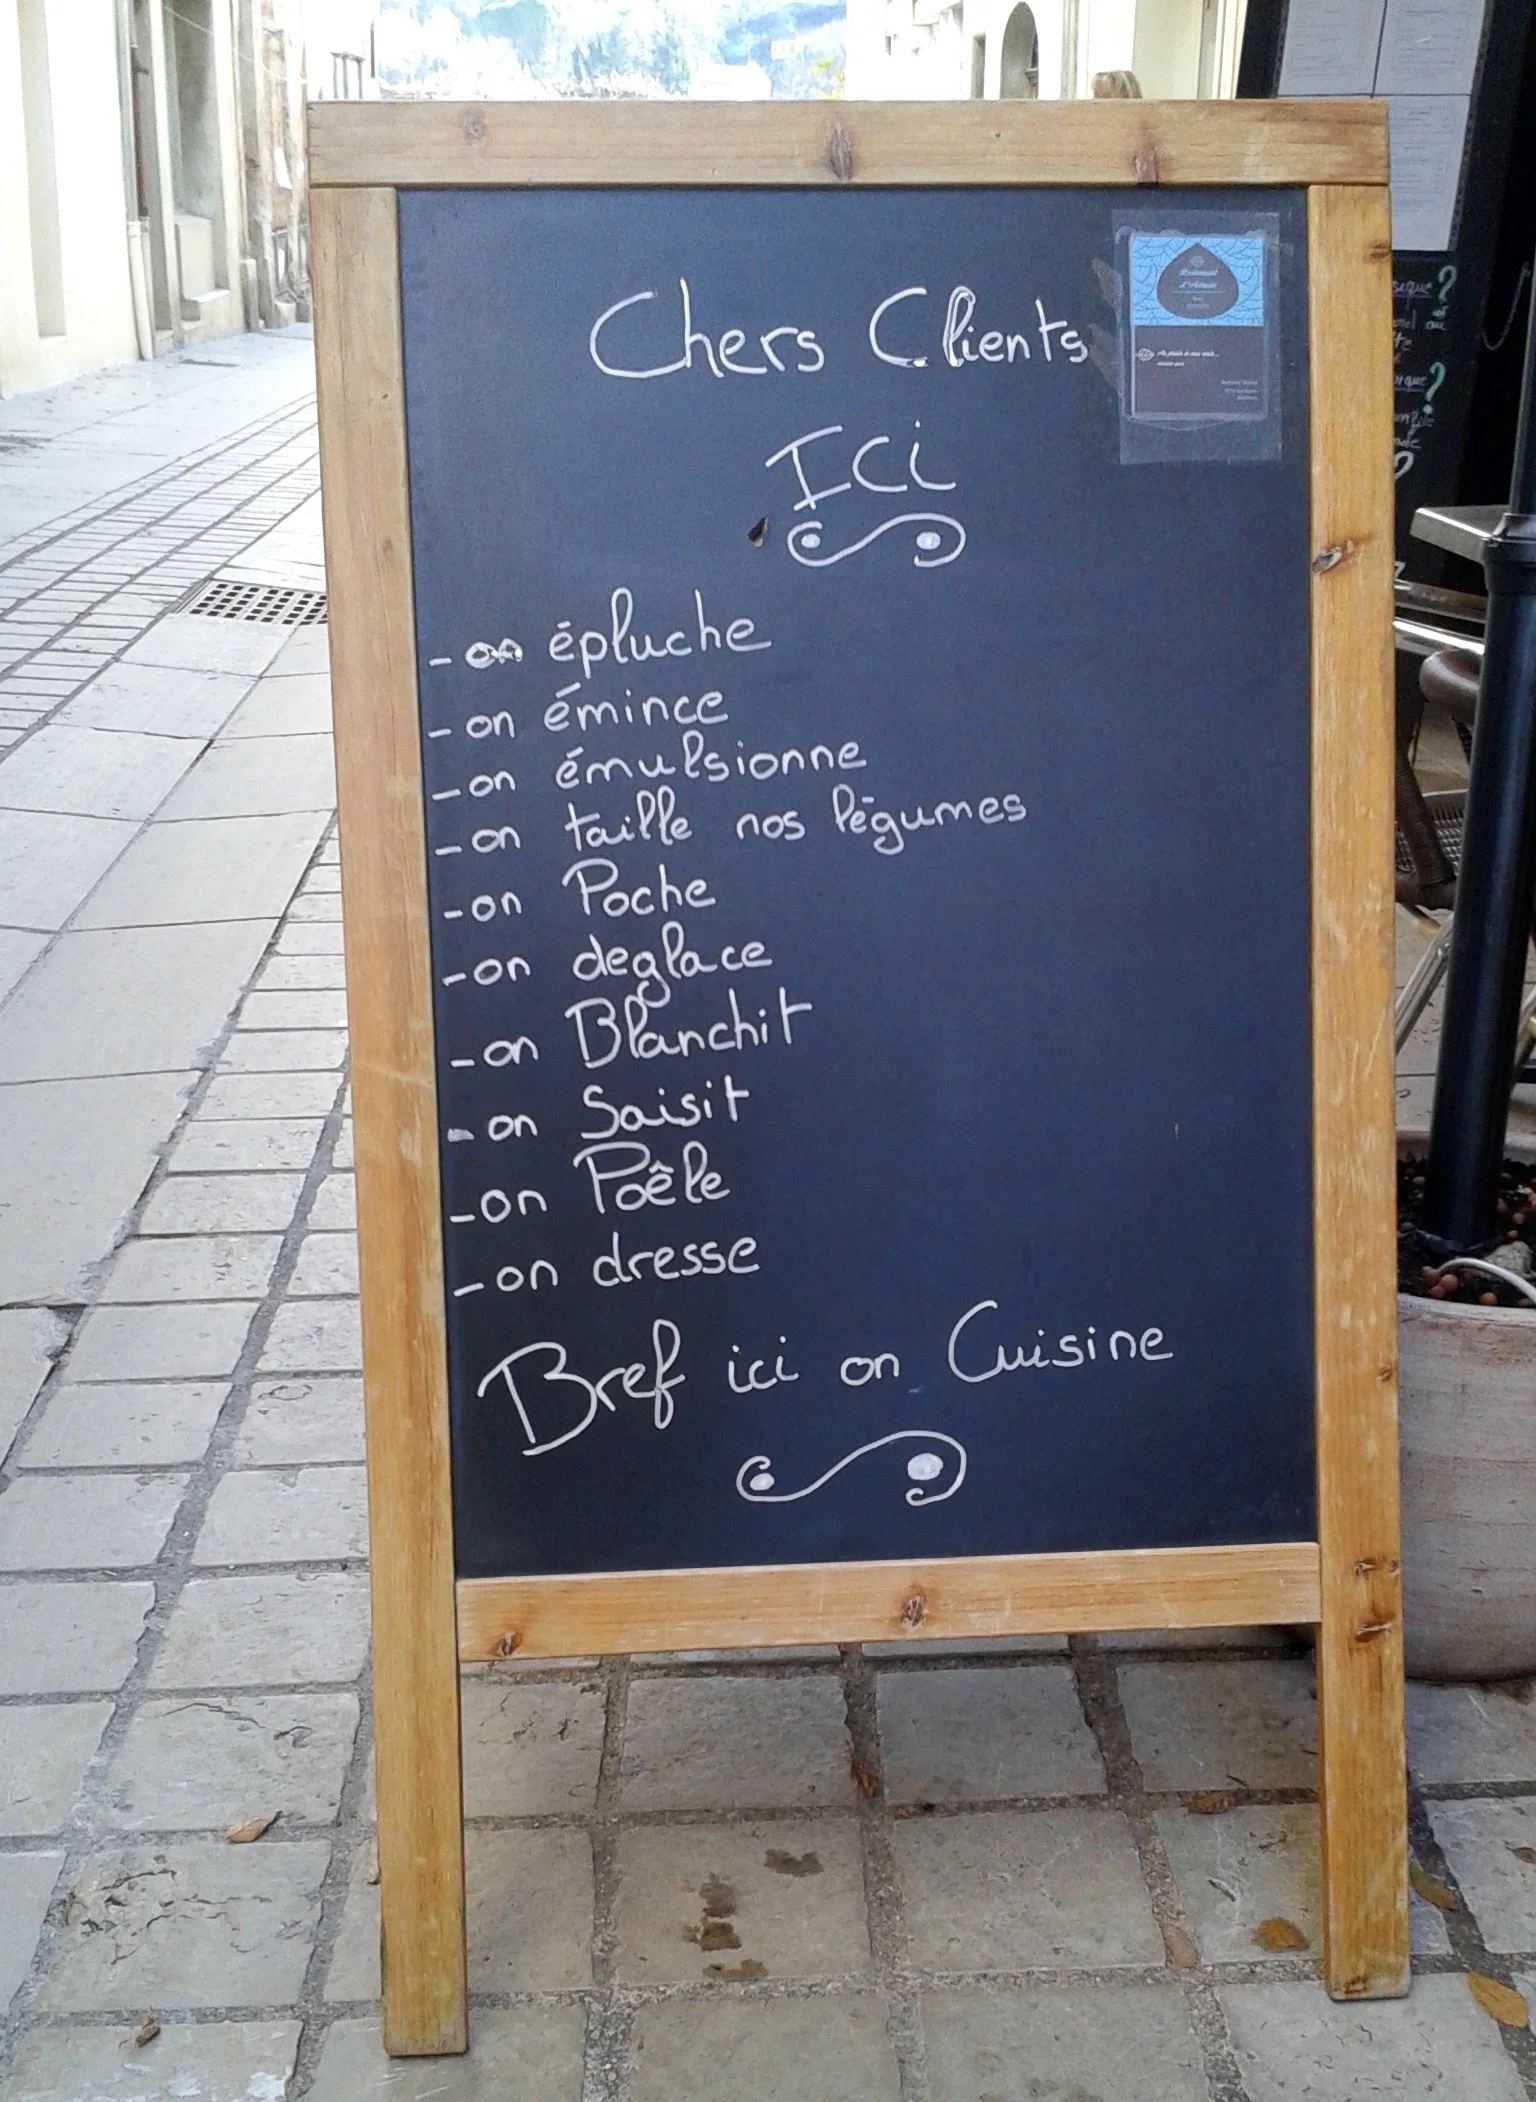 Chers Clients
ICi
- on épluche
- on émince
- on émulsionne
- on taille nos légumes
- on Poche
- on deglace
- on Blanchit
- on Saisit
- on Poêle
- on dresse
Bref ici on Cuisine